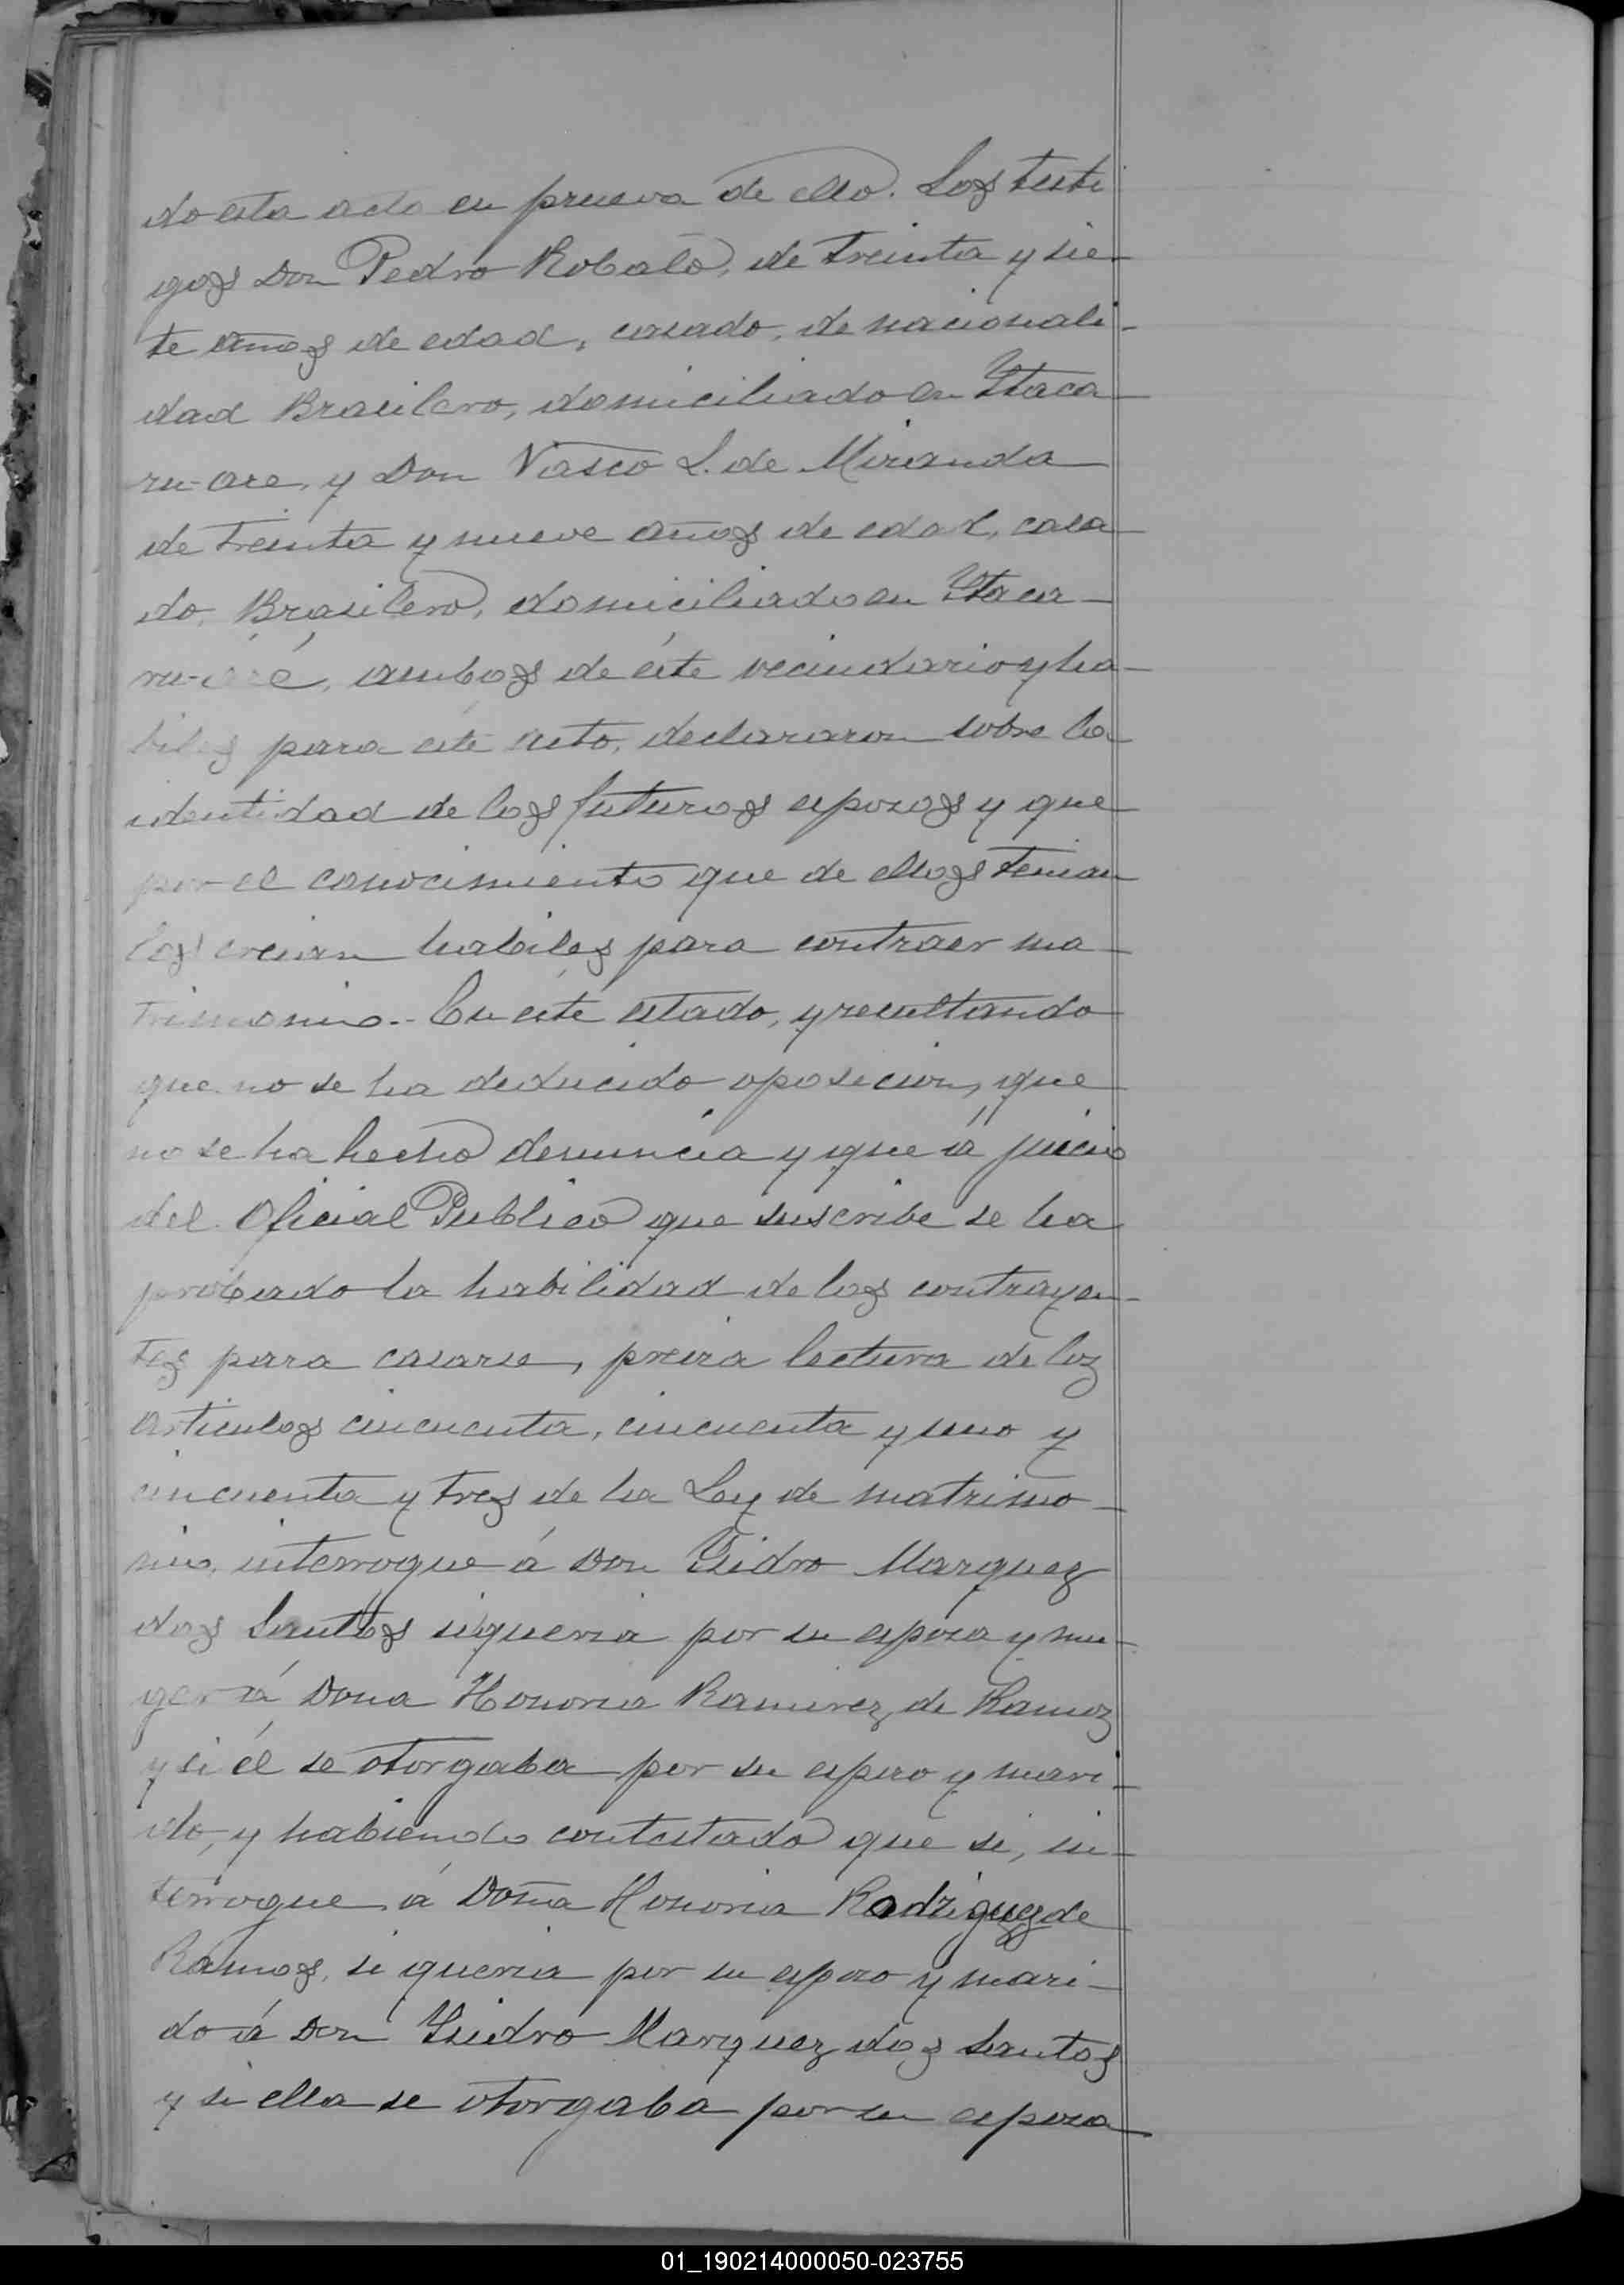 do esta acta en prueva de ello. Los testi
gos Don Pedro Robalo, de treinta y sie-
te años de edad, casado, de nacionali-
dad Brasilero, domiciliado en Ytaca-
ru-are, y Don Vasco L. de Miranda
de treinta y nueve años de edad, casa-
do, Brasilero, domiciliado en Ytaca-
ru-aré, ambos de éste vecindario y ha-
biles para éste acto, declararon sobre la
identidad de los futuros esposos y que
por el conocimiento que de ellos tenian
los creian habiles para contraer ma-
trimonio.- En éste estado, y resultando
que no se ha deducido oposicion, que
no se ha hecho denuncia y que á juicio
del Oficial Publico que suscribe se ha
probado la habilidad de los contrayen-
tes para casarse, previa lectura de los
articulos cincuenta, cincuenta y uno y
cincuenta y tres de la Ley de matrimo-
nio, interrogue á Don Ysidro Marquez
dos Santos si queria por su esposa y mu-
ger á Dona Honoria Ramirez de Ramos
y si él se otorgaba por su esposo y mari-
do, y habiendo contestado que si, in-
terrogue á Doña Honoria Rodriguez de
Ramos, si queria por su esposo y mari-
do á Don Ysidro Marquez dos Santos
y si ella se otorgaba por su esposa
01_190214000050-023755